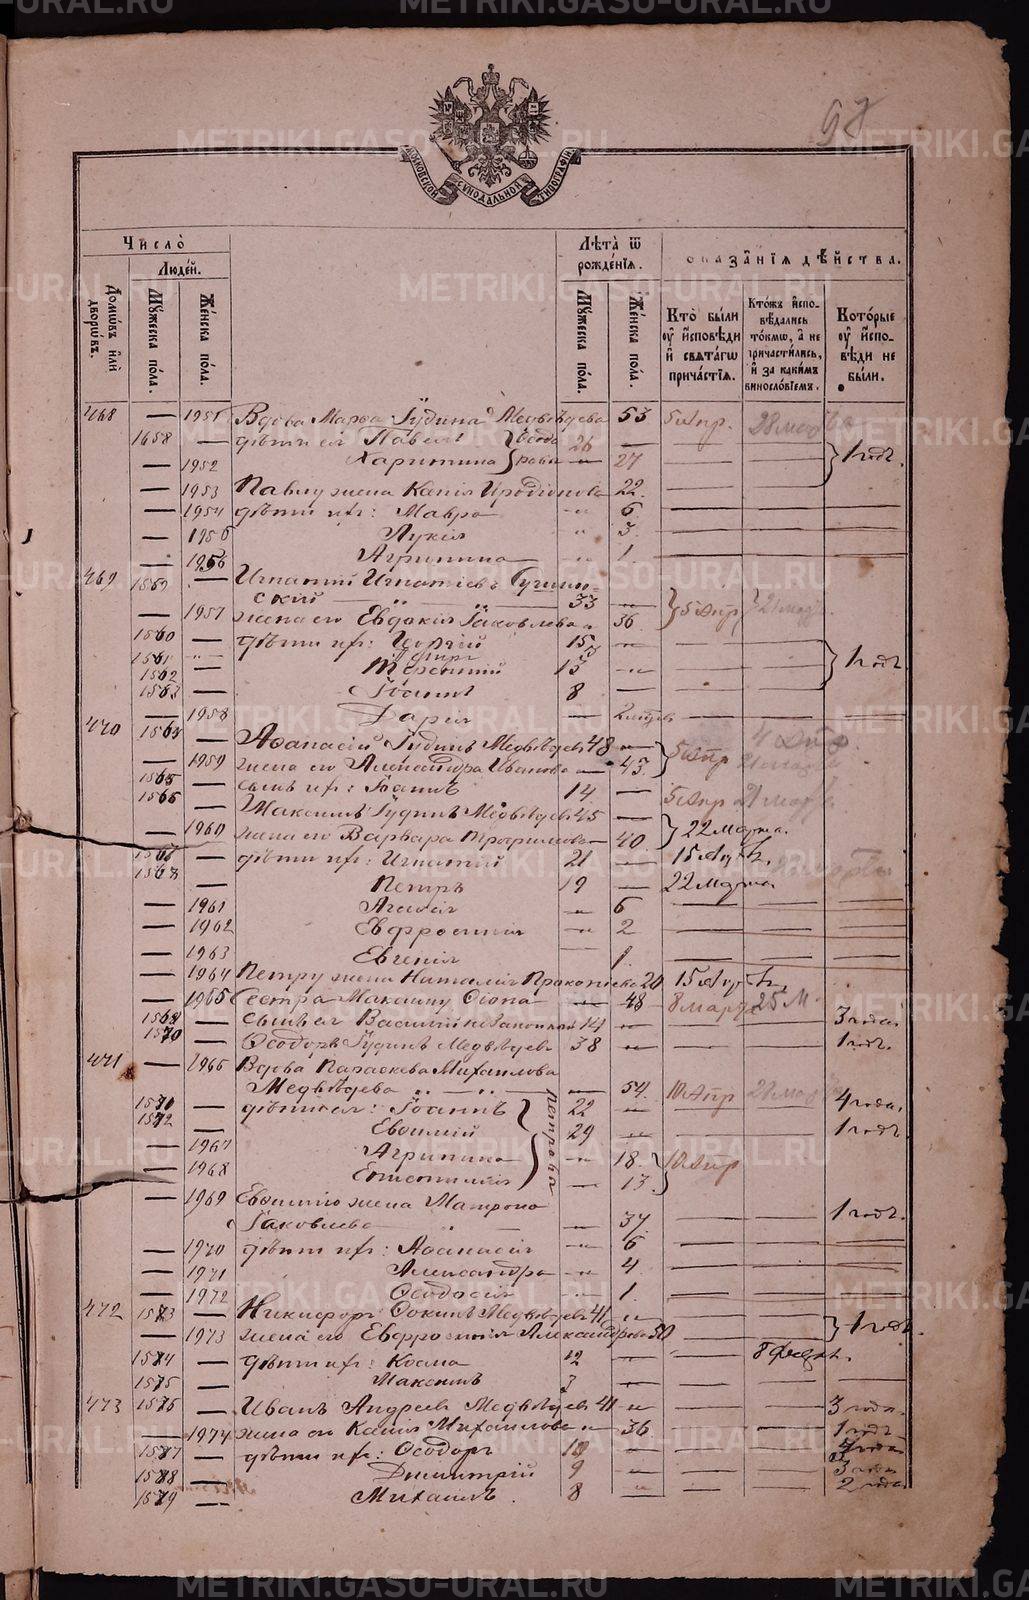 98
МОСКОВСКОЙ СУНОДАЛЬНОЙ ТИПОГРАФІИ
Число̀
Люде́й.
Домѡ́въ и҆лѝ дворѡ́въ.
Мꙋ́жеска по́ла.
Же́нска по́ла.
Лѣ́та ѿ рожде́нїѧ.
Мꙋ́жеска по́ла.
Же́нска по́ла.
Ѻ҆каза́нїѧ дѣ́йства.
Кто̀ бы́ли ᲂу҆ и҆сповѣди и҆ свѧта́гѡ причастїѧ.
Кто́жъ и҆спо-вѣдались то́кмѡ, а҆ не причасти́лись, и҆ за каки́мъ винословїемъ.
Кото́рые ᲂу҆ и҆спо-вѣди не бы́ли.
468 — 1951 Вдова Марѳа Іудина Медвѣдева 53 5 Апр. 28 мар
1558 — дѣти ея Павелъ 26 —
— 1952 Харитина 27 — — 1 годъ.
— 1953 Павлу жена Ксенія Иродіонова 22. — —
— 1954 дѣти ихъ: Мавра " 6. — — —
— 1955 Лукія " 3. — — —
— 1956 Агрипина " 1. — — —
469 1559 — Игнатий Игнатіевъ
ский — 33 "
— 1957 жена его Евдокія Іаковлева " 36 5 Апр 21 мар
1560 — дѣти ихъ: 15 "
1561
1562 Терентий 13 " 1 годъ
1563 — Іоаннъ 8 —
— 1958 Дарія —
470 1564 — Аѳанасій Іудинъ Медвѣдевъ 48 —
— 1959 жена его Александра Иванова — 43. 5 Апр 21 мар
1565 — сынъ ихъ: Іоаннъ 14 —
1566 — Максимъ Іудинъ Медвѣдевъ 45 — 5 Апр 21 мар
— 1960 жена его Варвара Трофимова — 40. 22 Марта.
1567 — дѣти ихъ: Игнатий 21 —
1568 — Петръ 19 — 22 Марта
— 1961 Агафія " 6 — — —
— 1962 Евфросинія " 2 — — —
— 1963 Евгенія — 1. — — —
— 1964 Петру жена Наталія Прокопіева 20
— 1965 Сестра Максиму — 48 8 Марта 25 М.
1569 — сынъ ея Василий незаконный 14 — 3 года
1570 — Ѳеодоръ Іудинъ Медвѣдевъ 38 " 1 годъ.
471 — 1966 Вдова Параскева Михаилова
Медвѣдева — 54. 10 Апр
1571 — дѣти ея: Іоаннъ 22 — 4 года.
1572 — Евѳимий 29 — 1 годъ
— 1967 Агрипина " 18. 10 Апр
— 1968 — 13.
Петровы
— 1969 Евѳимію жена Матрона
Іаковлева — 37. — — 1 годъ.
— 1970 дѣти ихъ: Аѳанасія " 6 — — —
— 1971 Александра " 4 — — —
— 1972 Ѳеодосія — 1. — — —
472 1573 — Никифоръ Ѳокинъ Медвѣдевъ 41 "
— 1973 жена его Евфросинія Александрова 50 1 годъ
1574 — дѣти ихъ: Косма 12 — — 8 Февр.
1575 — Максимъ 7 — — — —
473 1576 — Иванъ Андреевъ Медвѣдевъ 41 " — — 3 года.
— 1974 жена его Ксенія Михаилова " 36 — — 1 годъ
1577 — дѣти ихъ: Ѳеодоръ — —
1578 — Димитрій 9 — — — 3 года
1579 — Михаилъ. 8 " — — 2 года
METRIKI.GASO-URAL.RU